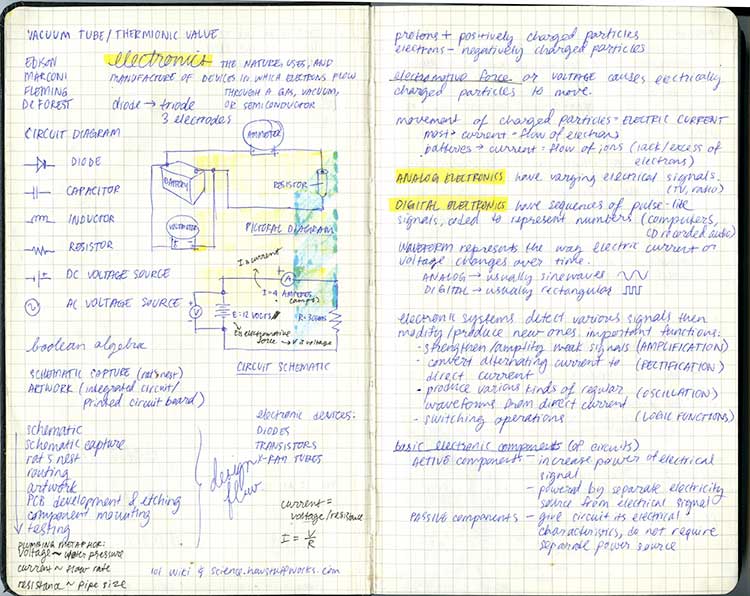 VACUUM TUBE/THERMIONIC VALVE
EDISON
MARCONI
FLEMING
DE FOREST
electronics THE NATURE, USES, AND
MANUFACTURE OF DEVICES IN WHICH ELECTRONS FLOW
THROUGH A GAS, VACUUM,
OR SEMICONDUCTOR
diode → triode
3 electrodes
CIRCUIT DIAGRAM
DIODE
CAPACITOR
INDUCTOR
RESISTOR
DC VOLTAGE SOURCE
AC VOLTAGE SOURCE
AMMETER
BATTERY
RESISTOR
VOLTMETER
PICTORAL DIAGRAM
I = current
A
I = 4 AMPERES
(amps)
V
E = 12 VOLTS
R = 3 OHMS
E = electromotive
force → V = voltage
CIRCUIT SCHEMATIC
boolean algebra
SCHEMATIC CAPTURE (rat's nest)
ARTWORK (integrated circuit/
printed circuit board)
schematic
schematic capture
rat's nest
routing
artwork
PCB development & etching
component mounting
testing
design
flow
electronic devices:
DIODES
TRANSISTORS
X-RAY TUBES
current =
voltage/resistance
I = V/R
PLUMBING METAPHOR:
voltage ~ water pressure
current ~ flow rate
resistance ~ pipe size
lol wiki & science.howstuffworks.com
protons + positively charged particles
electrons - negatively charged particles
electromotive force or VOLTAGE causes electrically
charged particles to move.
movement of charged particles = ELECTRIC CURRENT
most → current = flow of electrons
batteries → current = flow of ions (lack/excess of
electrons)
ANALOG ELECTRONICS have varying electrical signals.
(TV, radio)
DIGITAL ELECTRONICS have sequences of pulse-like
signals, coded to represent numbers (computers,
CD recorded audio)
WAVEFORM represents the way electric current or
voltage changes over time.
ANALOG → usually sinewaves
DIGITAL → usually rectangular
electronic systems detect various signals then
modify/produce new ones. important functions:
- strengthen/amplify weak signals (AMPLIFICATION)
- convert alternating current to (RECTIFICATION)
direct current
- produce various kinds of regular (OSCILLATION)
waveforms from direct current
- switching operations (LOGIC FUNCTIONS)
basic electronic components (of circuits)
ACTIVE component - increase power of electrical
signal
- powered by separate electricity
source from electrical signal
PASSIVE components - give circuit its electrical
characteristics, do not require
separate power source